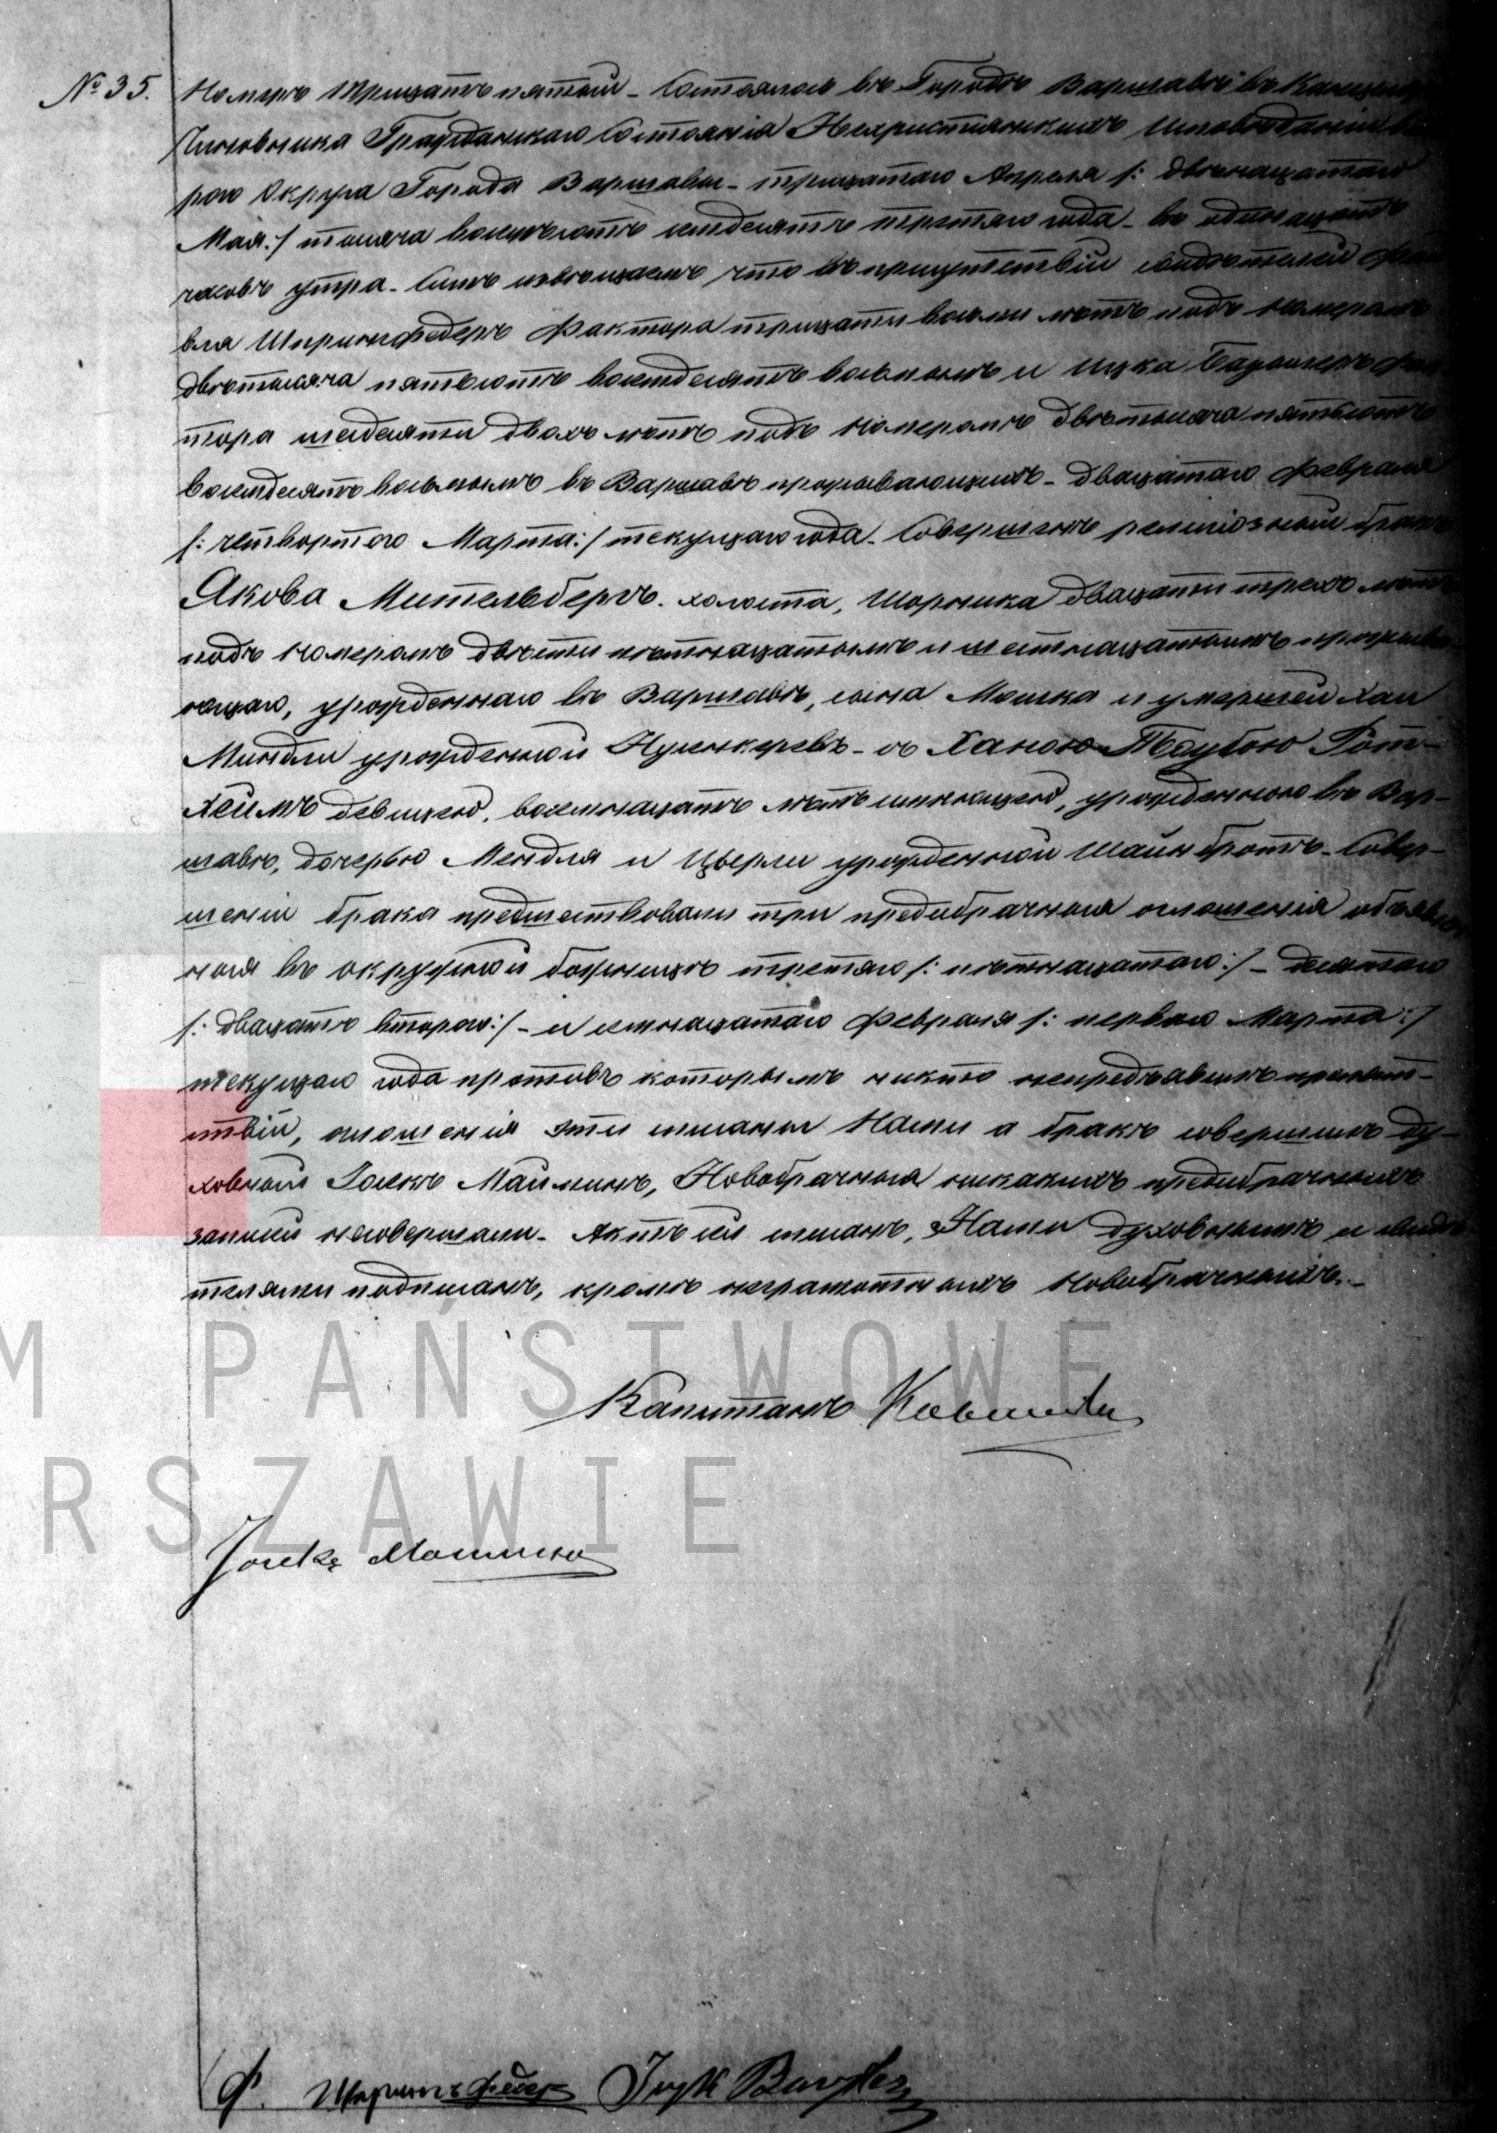 № 35. Номеръ тридцать пятый – Состоялося въ Городѣ Варшавѣ въ
Чиновника Гражданскаго Состоянія Нехристіянскихъ Исповѣданій
раго Округа Города Варшавы – тридцатаго Апрѣля /: двѣнадцатаго
Мая :/ тысяча восемьсотъ семдесятъ третяго года – въ одинадцать
часовъ утра – Симъ извѣщаемъ что въ присутствіи свидѣтелей
вля Шпринфедеръ Фактора тридцати восьми лѣтъ подъ номеромъ
двѣ тысяча пятьсотъ восемдесятъ восьмымъ и Ицка
тора шесдесяти двохъ лѣтъ подъ номеромъ двѣ тысяча пятьсотъ
восемдесятъ восьмымъ въ Варшавѣ проживающихъ – двадцатаго Февраля
/: четвортого Марта :/ текущаго года – Совершенъ религіозный бракъ
Якова Мительбергъ. холоста, Шорника двадцати трехъ лѣтъ
подъ номеромъ двѣсти пѣтнадцатымъ и шестнадцатымъ прожива
ющаго, урожденнаго въ Варшавѣ, сына Мошка и умершей Хаи
Миндли урожденной – съ Ханою Таубою Рот–
хеймъ девицею, восемнадцать лѣтъ имеющею, урожденною въ Вар–
шавѣ, дочерью Мендля и Цверли урожденной Шайнбротъ – Совер–
шеніи брака предшествовали три предибрачныя оглошенія объявлен
ныя въ окружной божницѣ третяго /: пѣтнадцатаго :/ – десятаго
/: двадцать второго :/ – и семнадцатаго Февраля /: перваго Марта :/
текущаго года противъ которымъ никто непредъявилъ препят–
ствій, оглошенія эти писаны Нами а бракъ совершилъ Ду–
ховный Іосекъ Маймынъ, Новобрачныя никакихъ предибрачныхъ
записей несовершали – Актъ сей писанъ, Нами духовнымъ и свидѣ
телями подписанъ, кромѣ неграмотныхъ Новобрачныхъ. –
Капитанъ
M PAŃSTWOWE
RSZAWIE
Ф.